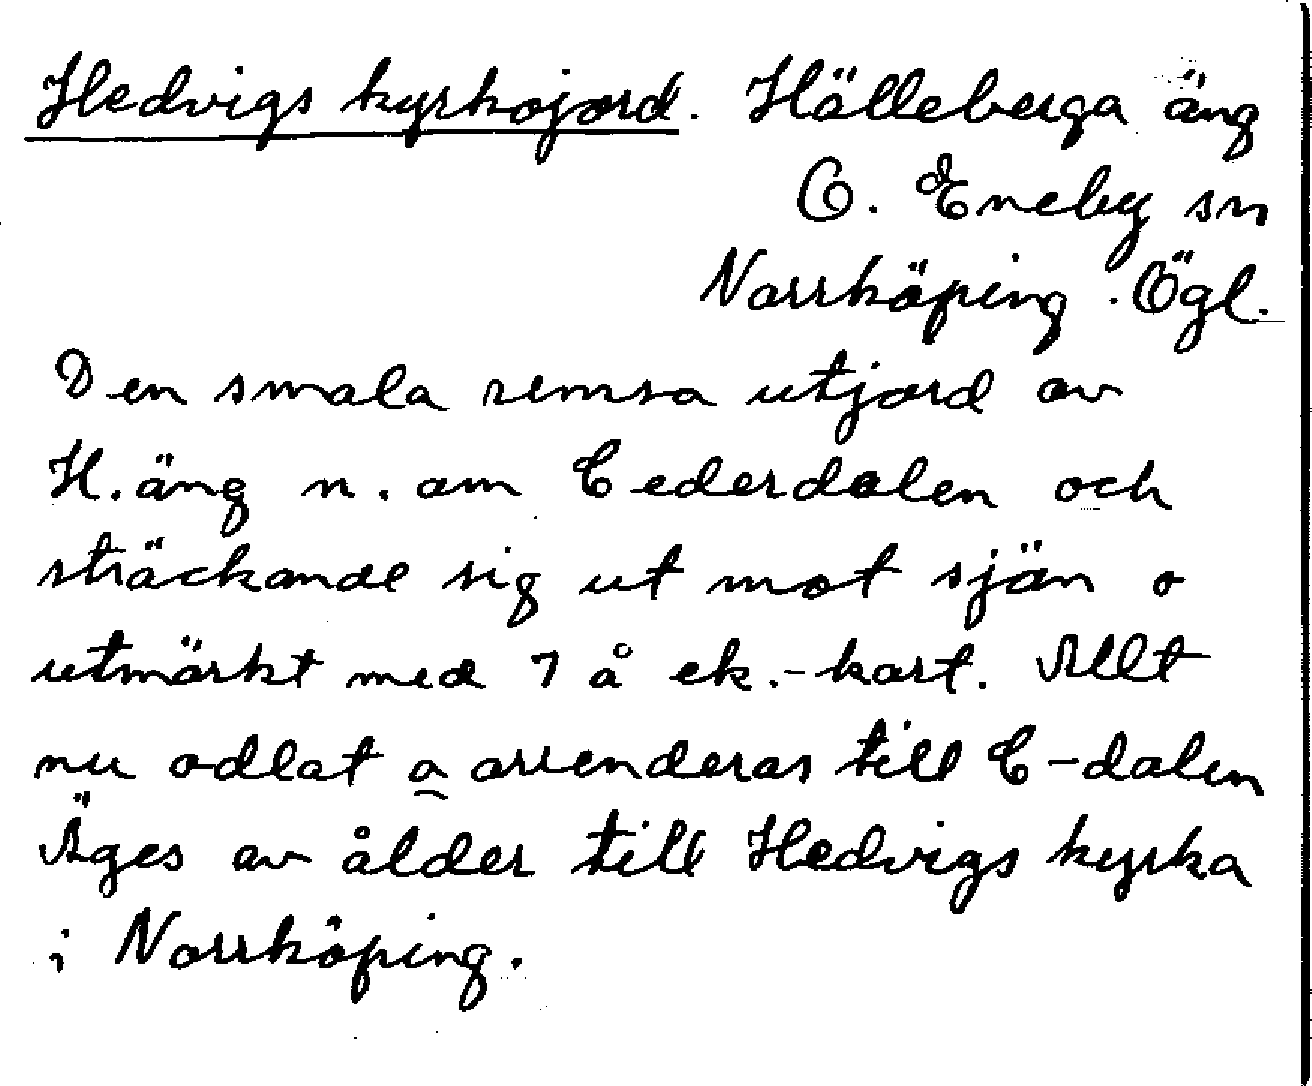 Hedvigs kyrkojord. Hälleberga äng
Ö. Eneby sn
Norrköping. Ögl.
Den smala remsa utjord av
H. äng n. om Cederdalen och
sträckande sig ut mot sjön o
utmärkt med 7 å ek.-kart. Allt
nu odlat o arrenderas till C-dalen
Äges av ålder till Hedvigs kyrka
i Norrköping.